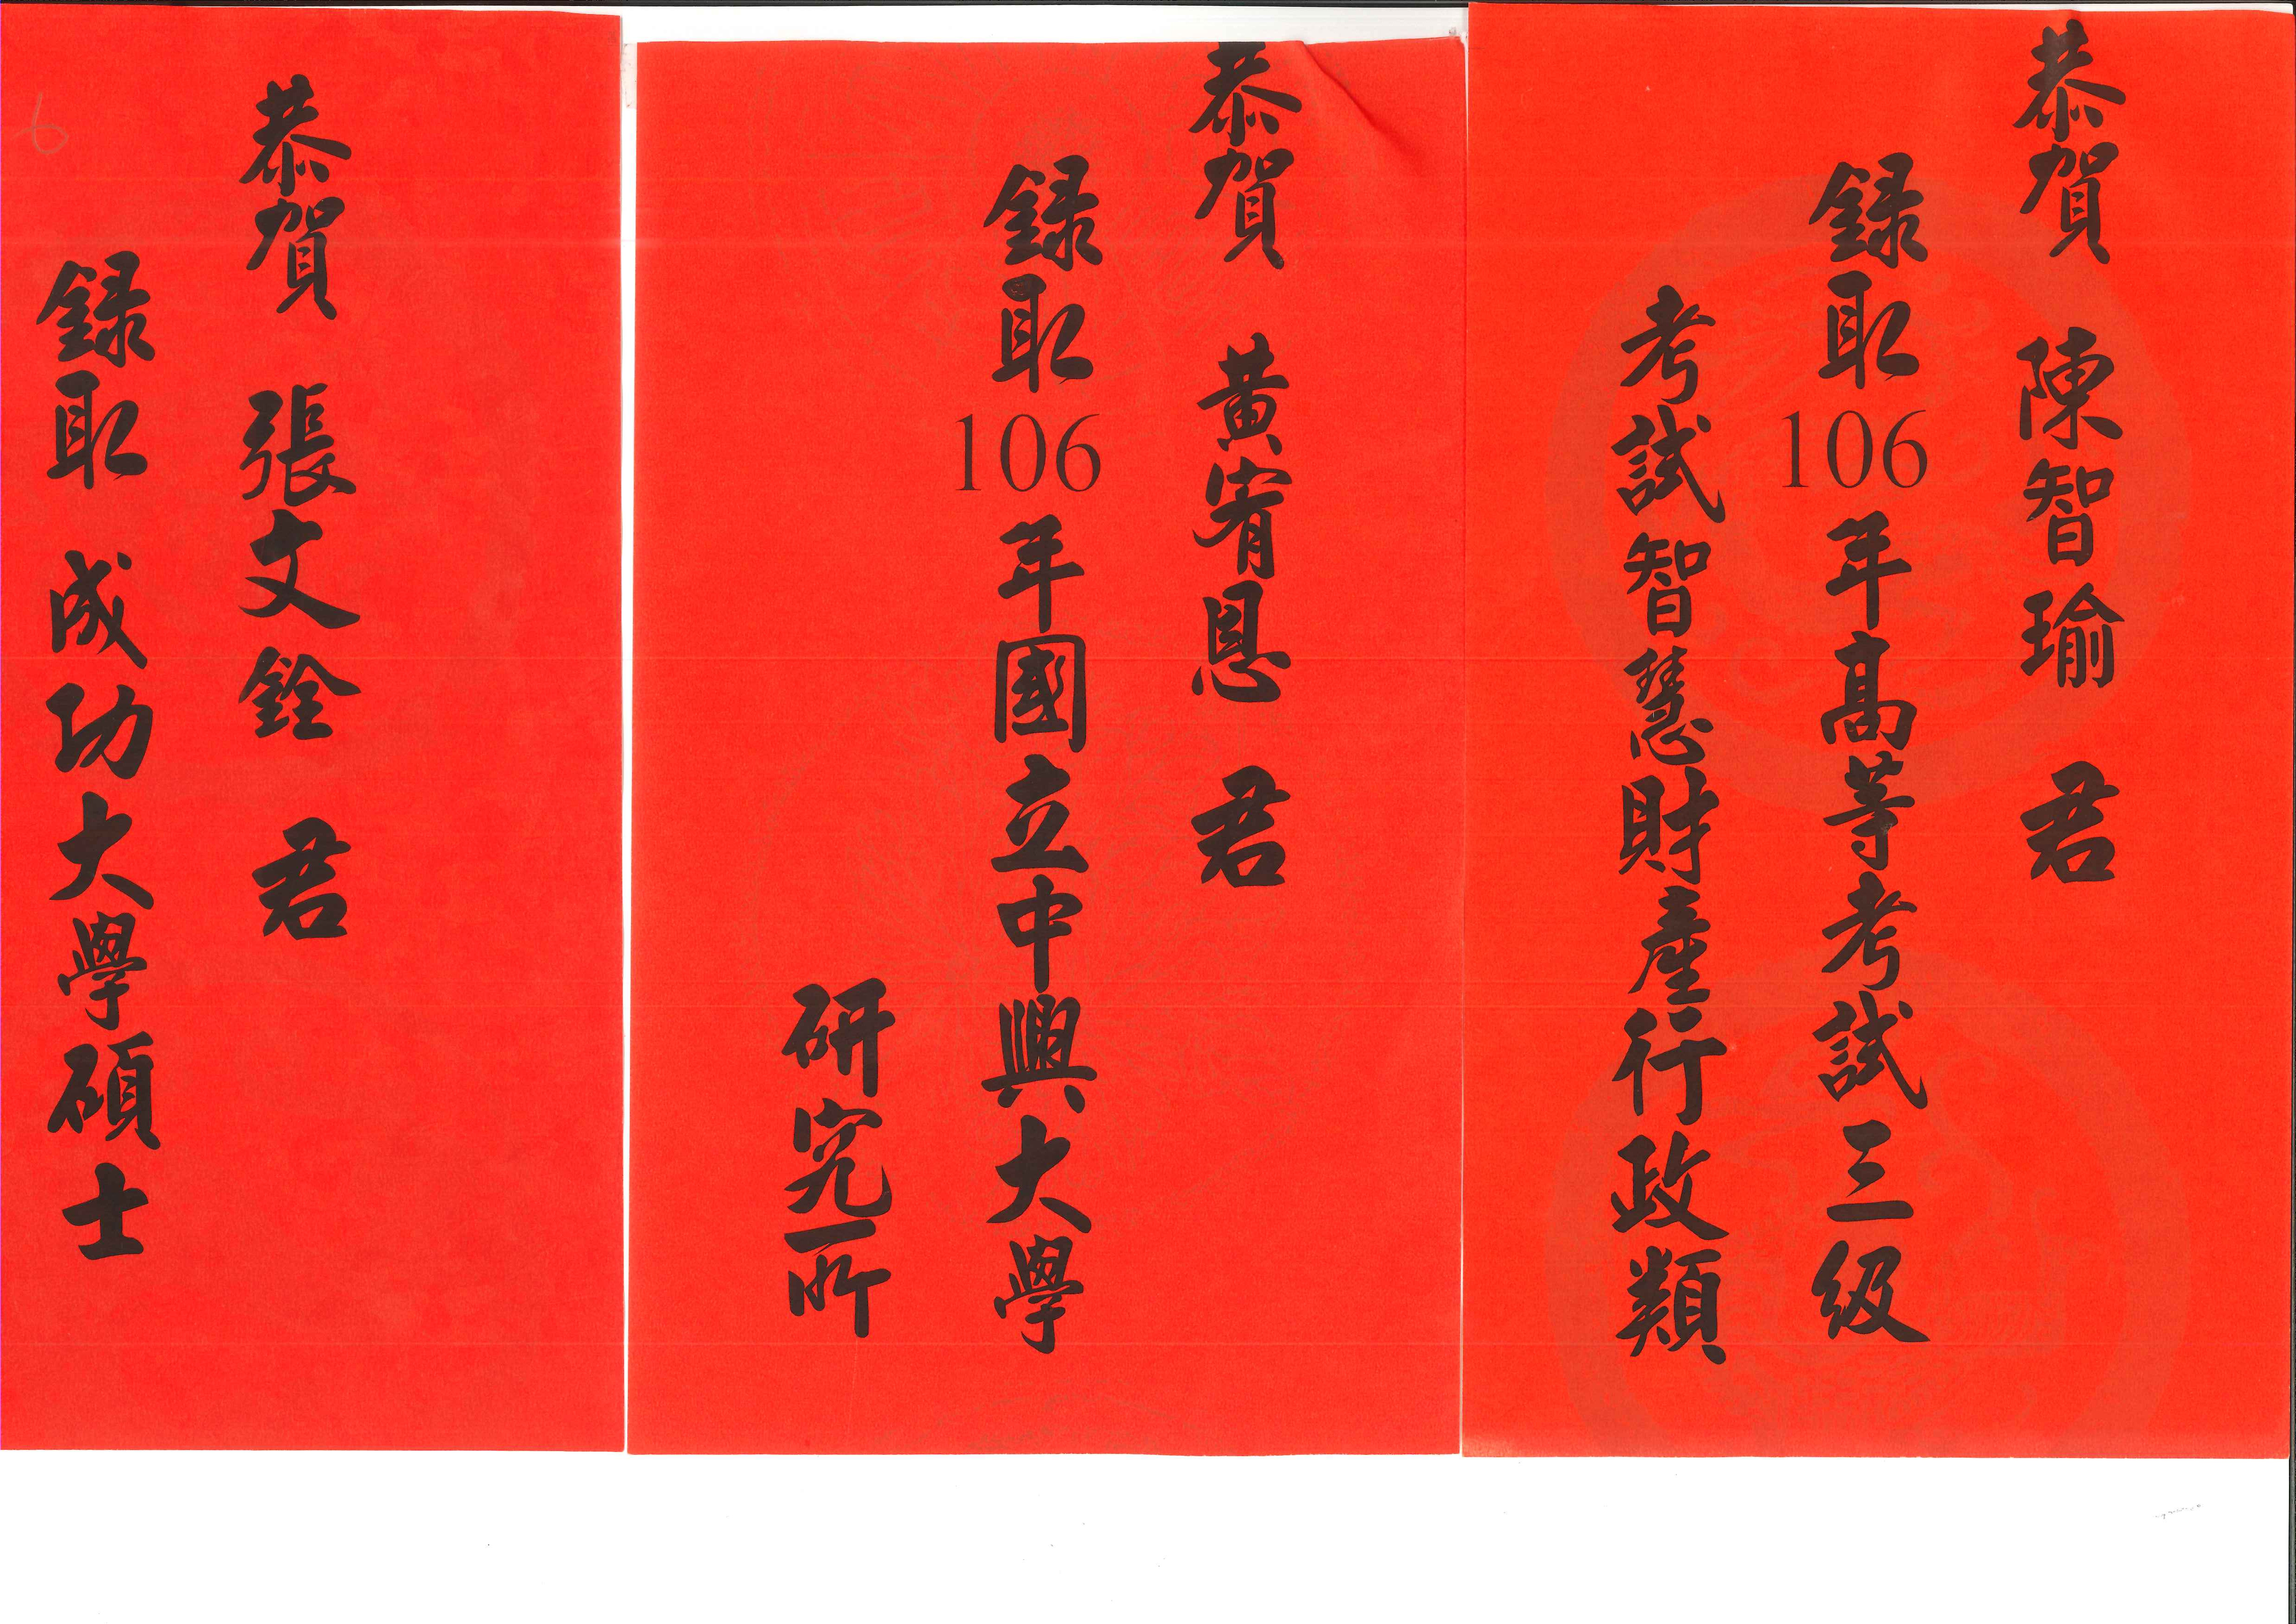 恭賀 陳智瑜 君
錄取106年高等考試三級
考試智慧財產行政類
恭賀 黃宥恩 君
錄取106年國立中興大學
研究所
恭賀 張文銓 君
錄取 成功大學碩士
6